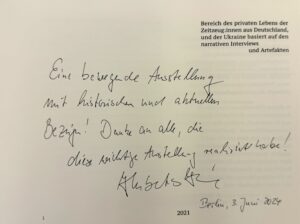 Bereich des privaten Lebens der
Zeitzeug:innen aus Deutschland,
und der Ukraine basiert auf den
narrativen Interviews
und Artefakten
Eine bewegende Ausstellung
mit historischen und aktuellen
Bezügen! Danke an alle, die
diese wichtige Ausstellung realisiert habe!
Berlin, 3. Juni 2024
1
2021